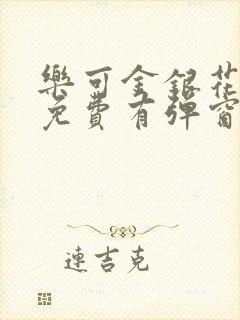 樂可金銀花
免費有彈窗
連吉克